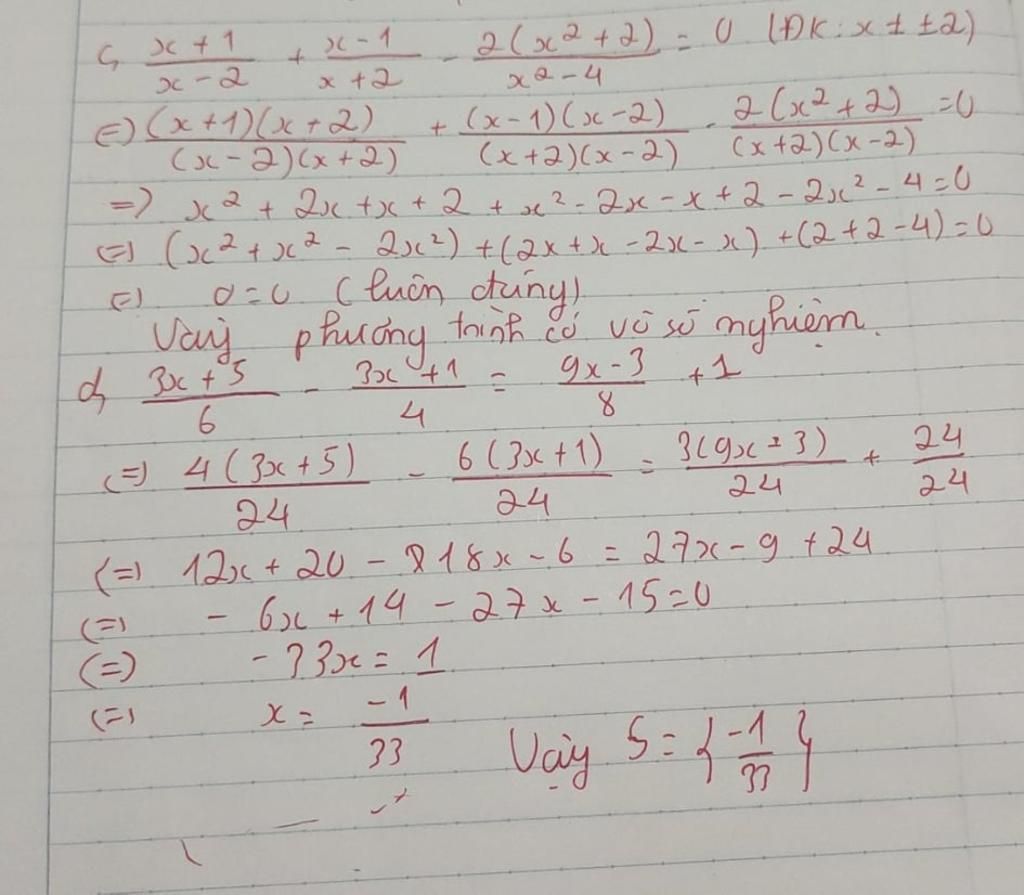 c, \frac{x+1}{x-2} + \frac{x-1}{x+2} - \frac{2(x^2+2)}{x^2-4} = 0 (ĐK: x ± ±2)
(=) \frac{(x+1)(x+2)}{(x-2)(x+2)} + \frac{(x-1)(x-2)}{(x+2)(x-2)} - \frac{2(x^2+2)}{(x+2)(x-2)} = 0
=) x^2 + 2x + x + 2 + x^2 - 2x - x + 2 - 2x^2 - 4 = 0
(=) (x^2 + x^2 - 2x^2) + (2x + x - 2x - x) + (2 + 2 - 4) = 0
(=) 0 = 0 (luôn đúng)
Vậy phương trình có vô số nghiệm.
d, \frac{3x+5}{6} - \frac{3x+1}{4} = \frac{9x-3}{8} + 1
(=) \frac{4(3x+5)}{24} - \frac{6(3x+1)}{24} = \frac{3(9x-3)}{24} + \frac{24}{24}
(=) 12x + 20 - 18x - 6 = 27x - 9 + 24
(=) - 6x + 14 - 27x - 15 = 0
(=) - 33x = 1
(=) x = \frac{-1}{33}
Vậy S = {\frac{-1}{33}}